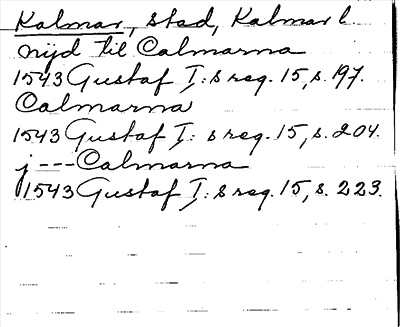 Kalmar, stad, Kalmar l.
nijd til Calmarna
1543 Gustaf I: s reg. 15, s. 197.
Calmarna
1543 Gustaf I: s reg. 15, s. 204.
j --- Calmarna
1543 Gustaf I: s reg. 15, s. 223.